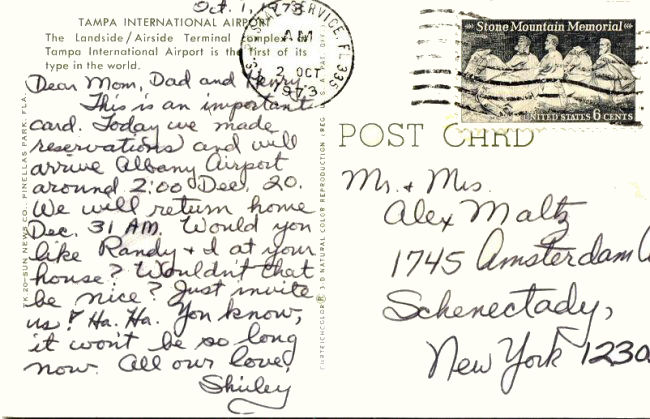 Oct. 1, 1973
TAMPA INTERNATIONAL AIRPORT
The Landside/Airside Terminal complex at
Tampa International Airport is the first of its
type in the world.
Dear Mom, Dad and Henry,
This is an important
card. Today we made
reservations and will
arrive Albany Airport
around 2:00 Dec. 20.
We will return home
Dec. 31 AM. Would you
like Randy + I at your
house? Wouldn't that
be nice? Just invite
us! Ha. Ha. You know,
it won't be so long
now. All our love,
Shirley
PINELLAS PARK, FLA.
SUN NEWS CO.
3-D NATURAL COLOR REPRODUCTION
POSTAL SERVICE, FL 335
AM
2 OCT
1973
Stone Mountain Memorial
UNITED STATES 6 CENTS
POST CARD
Mr. + Mrs.
Alex Maltz
1745 Amsterdam A
Schenectady,
New York 1230